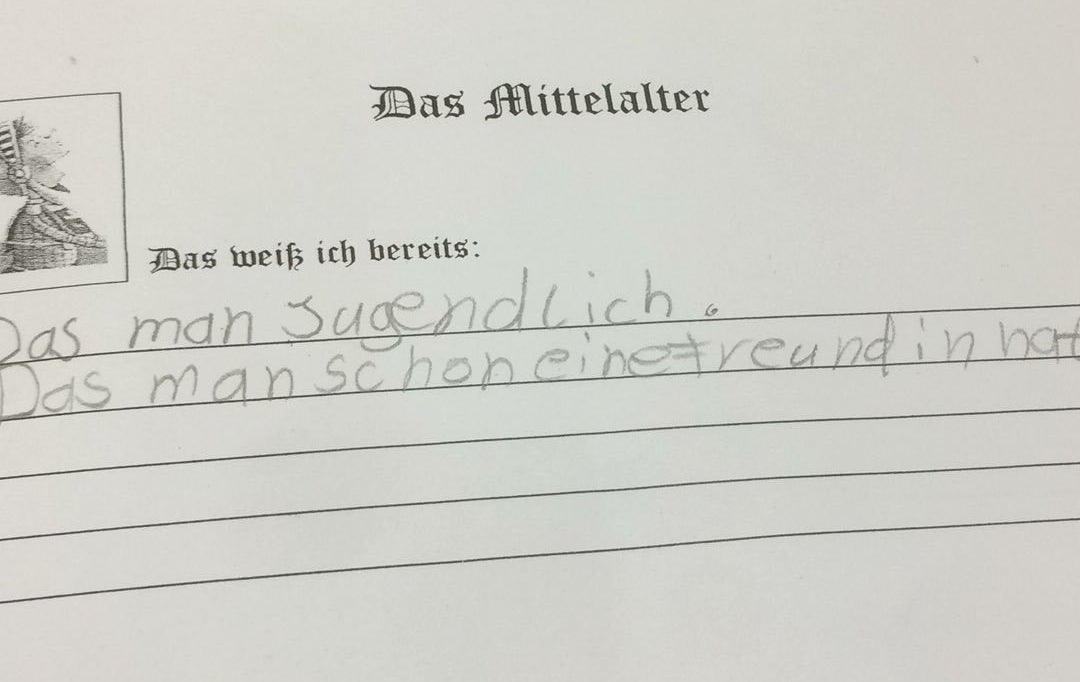 Das Mittelalter
Das weiß ich bereits:
Das man Jugendlich.
Das man schon eine freundin hat